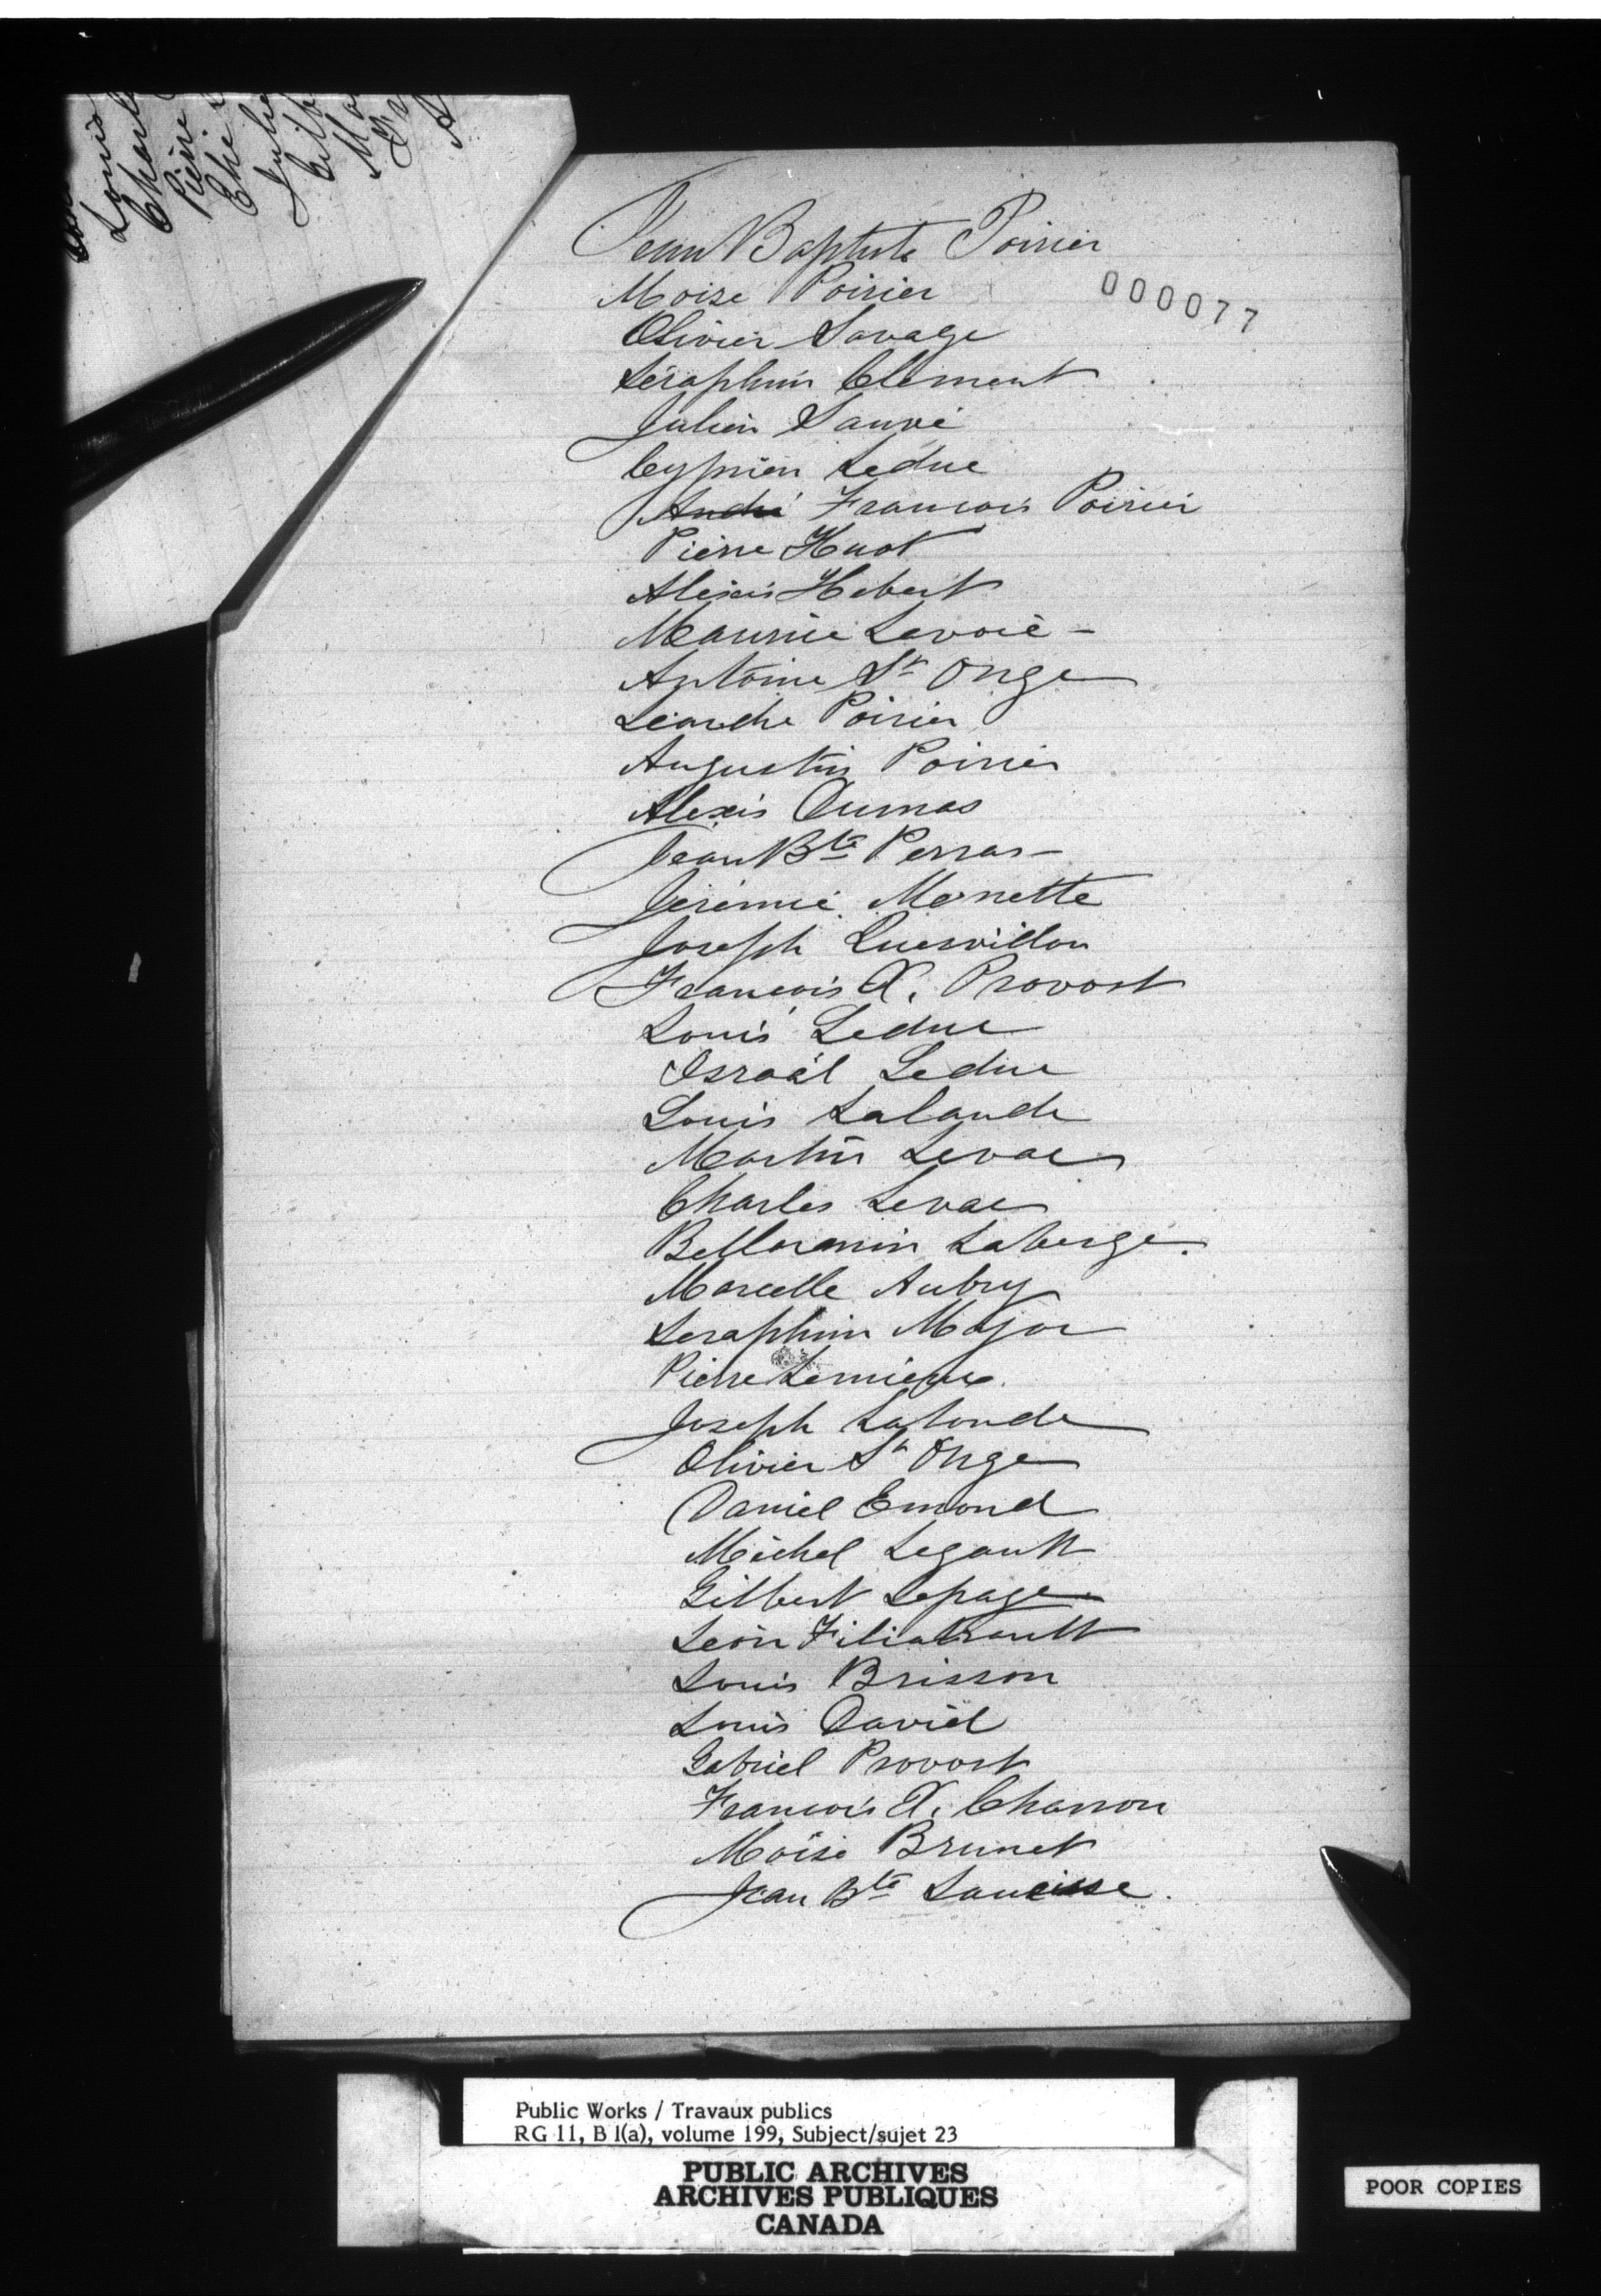 Louis
Charl
Pierre
Che
Julie
Jean Baptiste Poirier
000077
Moise Poirier
Olivier Savage
Séraphin Clément
Julien Sauvé
Cyprien Leduc
André Francois Poirier
Pierre Huot
Alexis Hebert
Maurice Lavoie -
Antoine St Onge
Léandre Poirier
Augustin Poirier
Alexis Dumas
Jean Bte Perras -
Jérémie Monette
Joseph Quesvillon
Francois X. Provost
Louis Leduc
Israël Leduc
Louis Lalande
Martin Levac
Charles Levac
Bellarmin Laberge.
Marcelle Aubry
Seraphin Major
Pierre Lemieux.
Joseph Lalonde
Olivier St Onge
Daniel Emond
Michel Legault
Gilbert Lepage
Léon Filiatrault
Louis Brisson
Louis David
Gabriel Provost
Francois X. Charron
Moïse Brunet
Jean Bte Saucisse.
Public Works / Travaux publics
RG 11, B 1(a), volume 199, Subject/sujet 23
PUBLIC ARCHIVES
ARCHIVES PUBLIQUES
CANADA
POOR COPIES